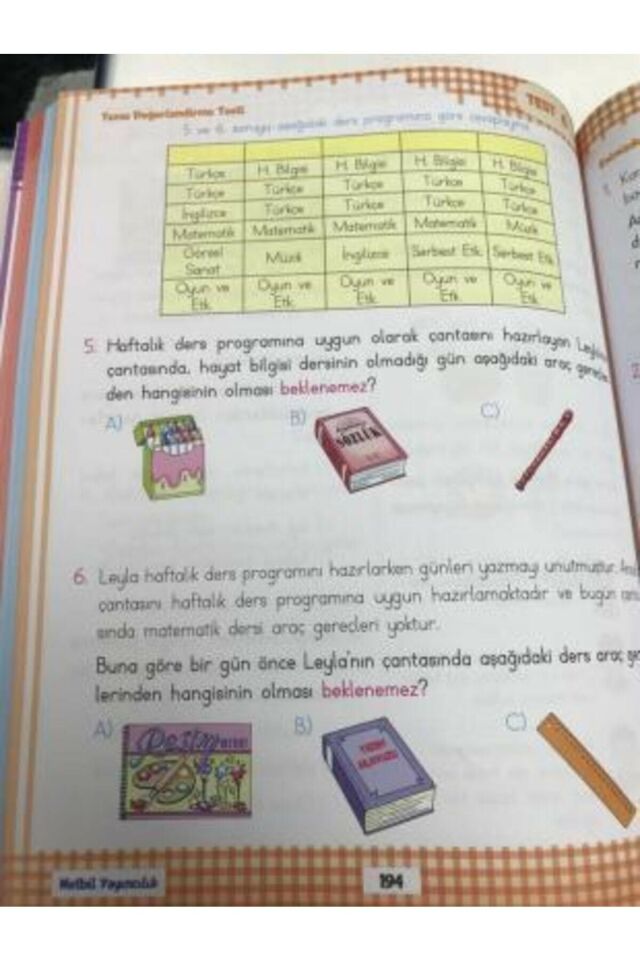 Tema Değerlendirme Testi
TEST
5 ve 6. soruyu aşağıdaki ders programına göre cevaplayınız.
Türkçe H. Bilgisi H. Bilgisi H. Bilgisi H. Bilgisi
Türkçe Türkçe Türkçe Türkçe Türkçe
İngilizce Türkçe Türkçe Türkçe Türkçe
Matematik Matematik Matematik Matematik Müzik
Görsel Sanat Müzik İngilizce Serbest Etk. Serbest Etk.
Oyun ve Etk. Oyun ve Etk. Oyun ve Etk. Oyun ve Etk. Oyun ve Etk.
5. Haftalık ders programına uygun olarak çantasını hazırlayan
çantasında, hayat bilgisi dersinin olmadığı gün aşağıdaki araç
den hangisinin olması beklenemez?
A) B) C)
SÖZLÜK
6. Leyla haftalık ders programını hazırlarken günleri yazmayı unutmuştur.
çantasını haftalık ders programına uygun hazırlamaktadır ve bugün
sında matematik dersi araç gereçleri yoktur.
Buna göre bir gün önce Leyla'nın çantasında aşağıdaki ders araç
lerinden hangisinin olması beklenemez?
A) B) C)
YAZIM KILAVUZU
194